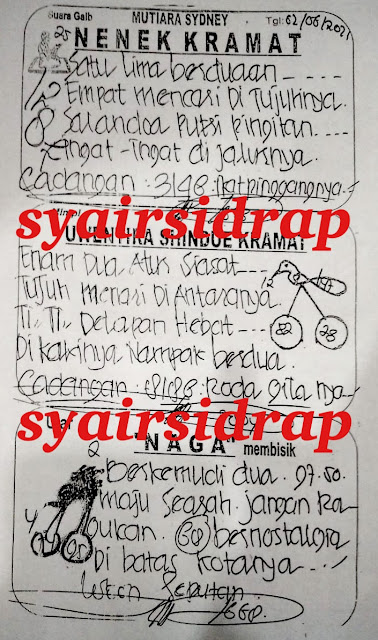 Suara Gaib MUTIARA SYDNEY Tgl: 02/06/2021
25 NENEK KRAMAT
Satu lima berduaan
12 Empat mencari Di Tujuknya.
8 Salandoa Putri Pingitan
Tngat-Tngat di jalurnya.
Cadangan: 3148
syairsidrap
UHENTIKA SHINDUE KRAMAT
Enam Dua Atur Siasat
12
Tujuh menari Di Antaranya
Ti, Ti, Delapan Hebat
82 28
Di Kakinya Nampak berdua
Cadangan: 8198 Roda gila nya
syairsidrap
2 "NAGA" membisik
berkemudi dua. 97.50.
maju Searah jangan Ra
gukan. bernostalgia
4
Di batas kotanya